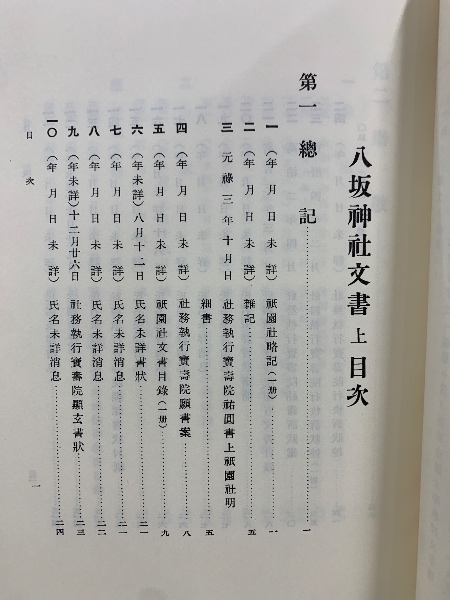 八坂神社文書 上 目次
第一 總記……一
一 (年月日未詳) 祇園社略記(一册)……一
二 (年月日未詳) 雜記……五
三 元祿三年十月日 社務執行寶壽院祐圓書上祇園社明
細書……五
四 (年月日未詳) 社務執行寶壽院願書案……八
五 (年月日未詳) 祇園社文書目錄(一册)……九
六 (年未詳)八月十二日 氏名未詳書狀……二一
七 (年月日未詳) 氏名未詳消息……二一
八 (年月日未詳) 氏名未詳消息……二二
九 (年未詳)十二月廿六日 社務執行寶壽院顯玄書狀……二三
一〇 (年月日未詳) 氏名未詳消息……二四
目次
一